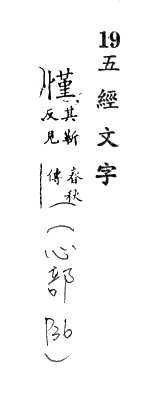 19 五經文字
慬 其斯反見春秋傳 (心部 P36)